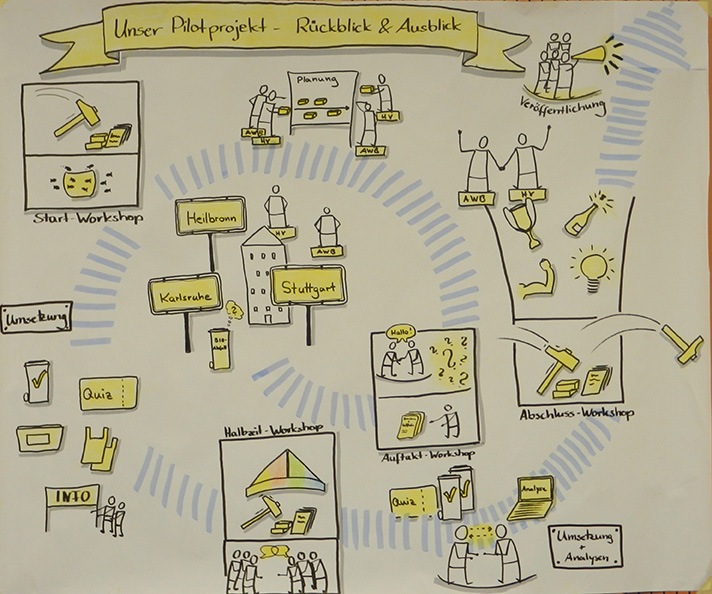 Unser Pilotprojekt - Rückblick & Ausblick
Veröffentlichung
Planung
AWB
HV
AWB
Start-Workshop
AWB
HV
Heilbronn
HV
AWB
Karlsruhe
Stuttgart
?
BIO-
Umsetzung
Quiz
INFO
Hallo!
? ? ? ? ? ? ?
Auftakt-Workshop
Abschluss-Workshop
Halbzeit-Workshop
Quiz
Analyse
Umsetzung
+
Analysen